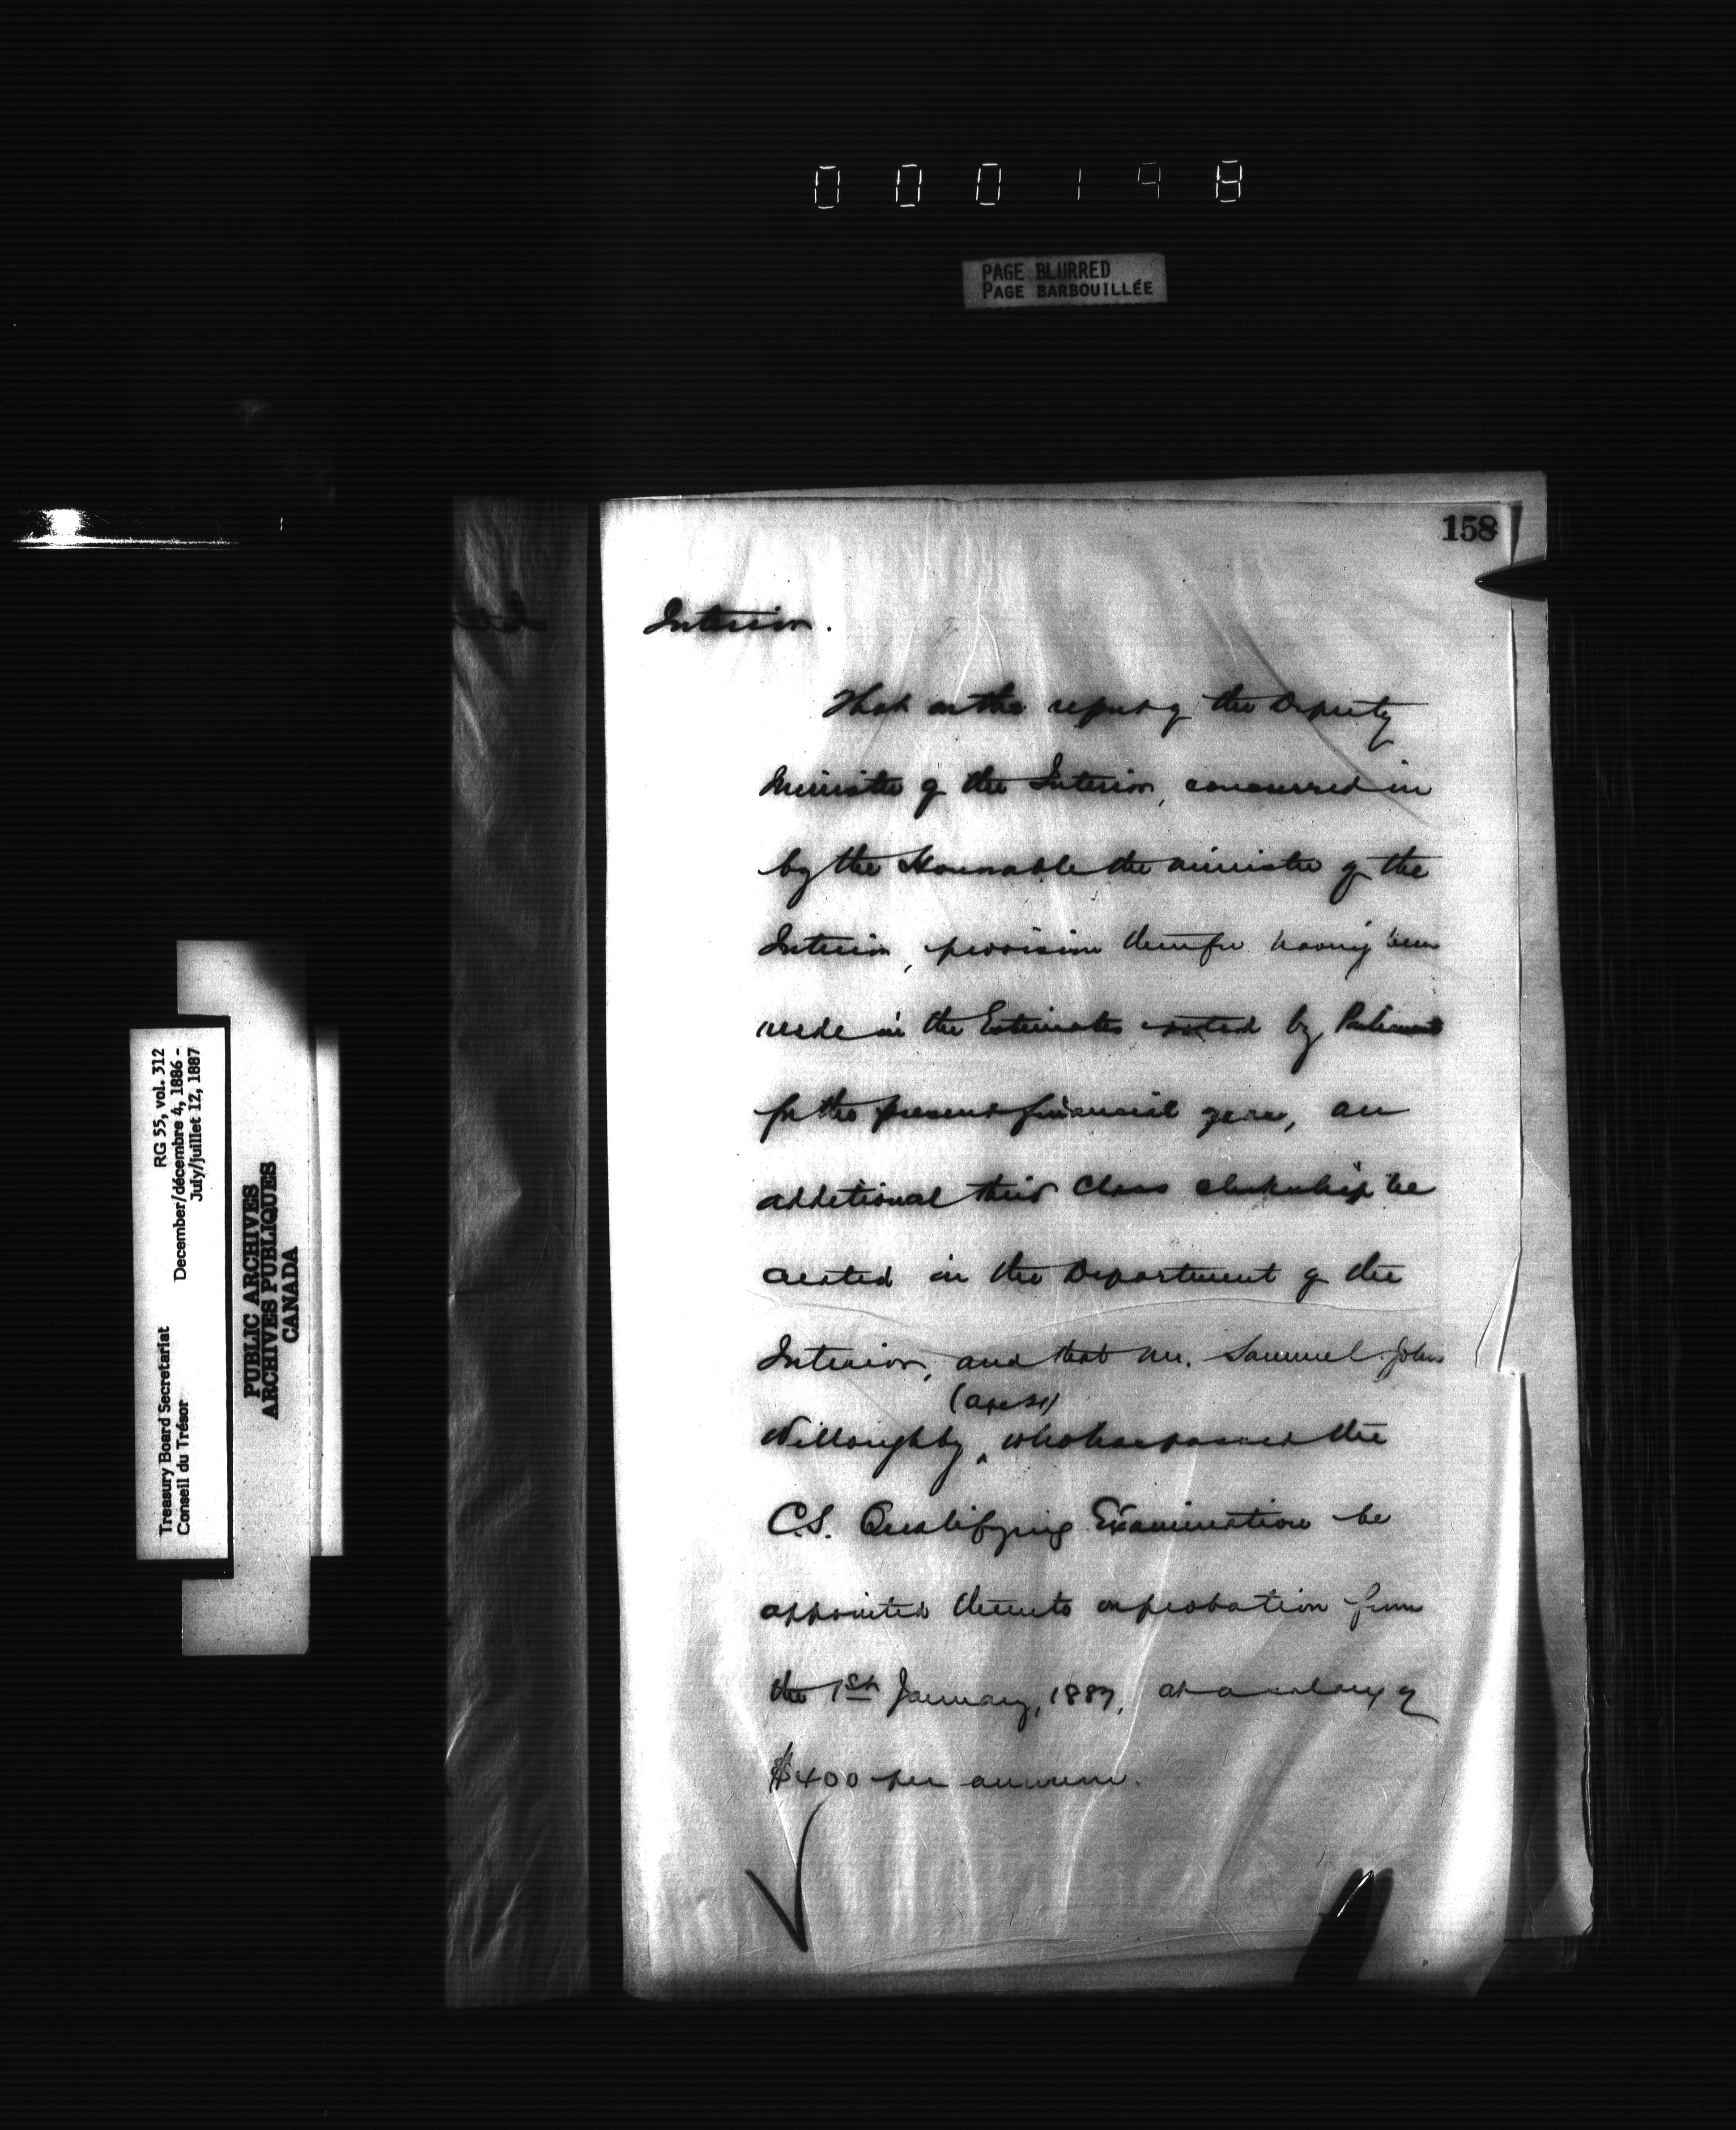 000198
PAGE BLURRED
PAGE BARBOUILLÉE
158
Interior.
That on the report of the Deputy
Minister of the Interior, concurred in
by the Honorable the Minister of the
Interior, provision therefor having been
made in the Estimates voted by Parliament
for the present financial year, an
additional third Class clerkship be
created in the Department of the
Interior, and that Mr. Samuel John
Willoughby, who has passed the
C.S. Qualifying Examination be
appointed thereto on probation from
the 1st January, 1887, at a salary of
$400 per annum.
Treasury Board Secretariat RG 55, vol. 312
Conseil du Trésor December/décembre 4, 1886 -
July/juillet 12, 1887
PUBLIC ARCHIVES
ARCHIVES PUBLIQUES
CANADA